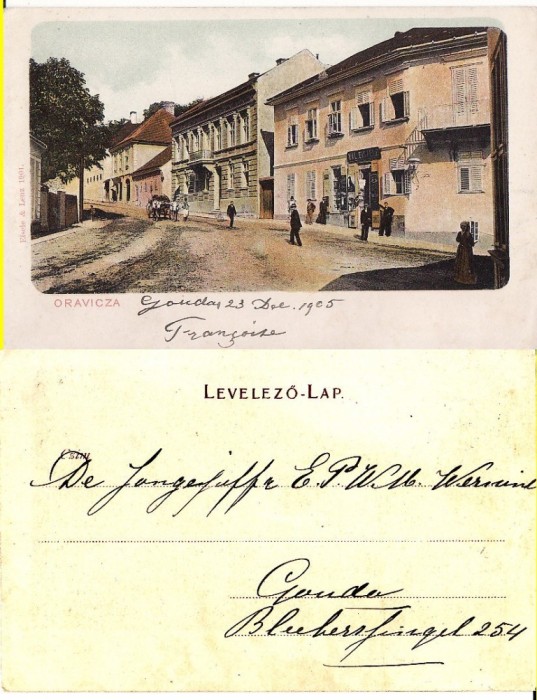 Eisele & Lenz 1901.
ORAVICZA
Gouda, 23 Dec. 1905
Françoise
LEVELEZŐ-LAP.
Czím
De Jongejuffr E. P. W. M. Wernink
Gouda
Bleekerssingel 254